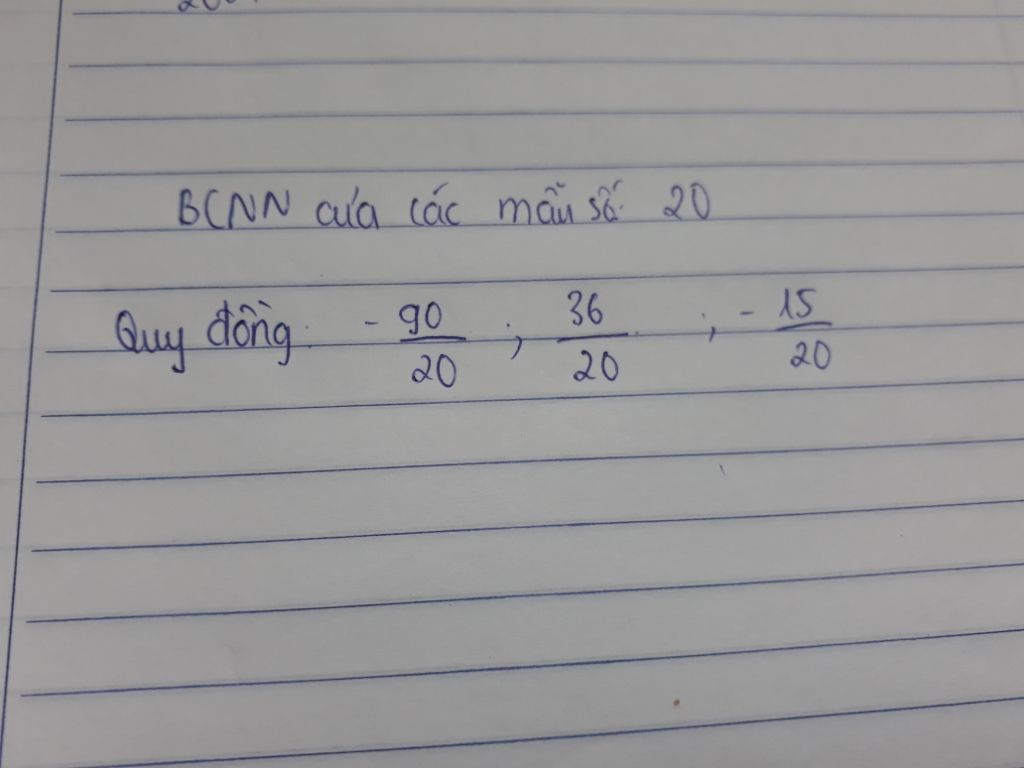 BCNN của các mẫu số 20
Quy đồng: -90/20 ; 36/20 ; -15/20